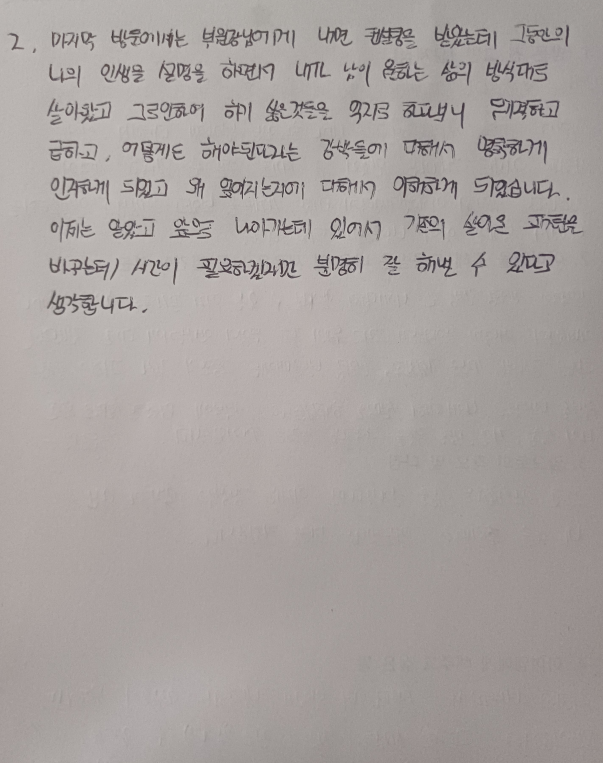 2. 마지막 방문에서는 부원장님에게 내면 컨설팅을 받았는데 그동안의
나의 인생을 설명을 하면서 내가 남이 원하는 삶의 방식대로
살아왔고 그로인하여 하기 싫은것들을 억지로 하다보니
급하고, 어떻게든 해야된다라는 강박들에 대해서 명확하게
인지하게 되었고 왜 대해서 이해하게 되었습니다.
이제는 알았고 앞으로 나아가는데 있어서 기존의 살아온 패턴을
바꾸는데 시간이 필요하겠지만 분명히 잘 해낼 수 있다고
생각합니다.